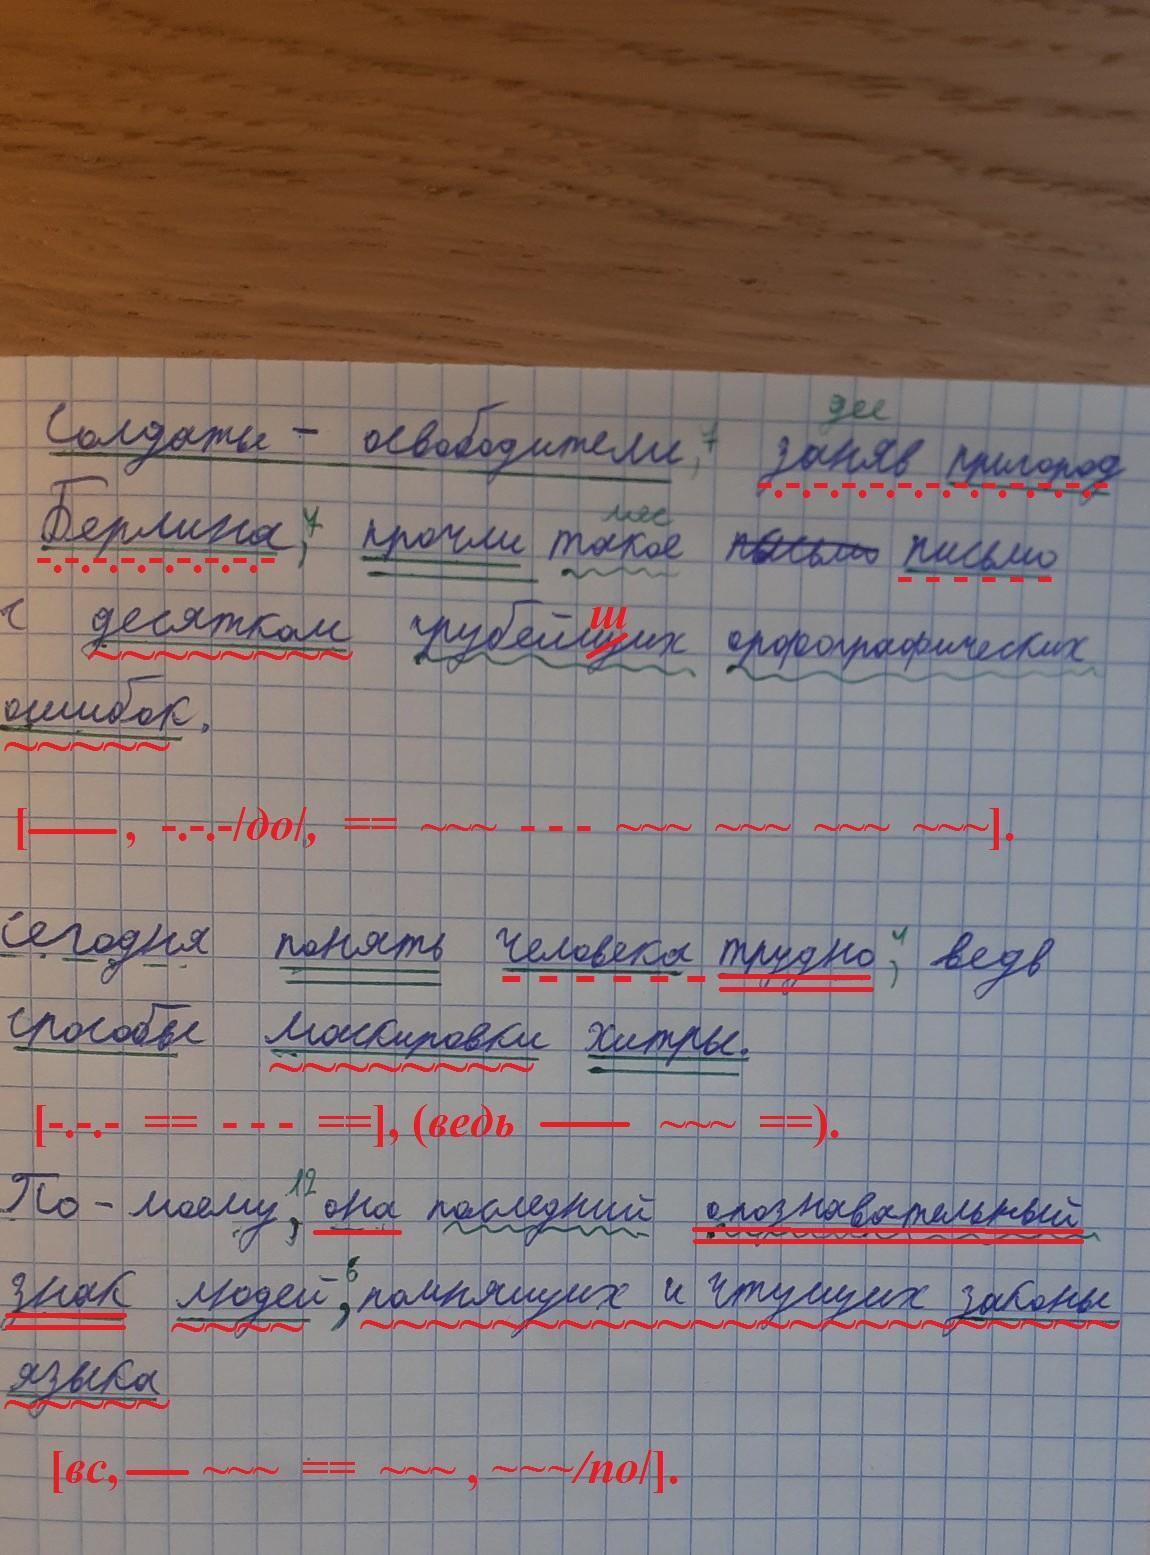 дее
Солдаты - освободители,7 заняв пригород
нес
Берлина,7 прочли такое письмо письмо
с десятком грубейщих орфографических
ш
ошибок.
[——, -.-.-/до/, == ~~~ - - - ~~~ ~~~ ~~~ ~~~].
Сегодня понять человека трудно,4 ведь
способы маскировки хитры.
[-.-.- == - - - ==], (ведь —— ~~~ ==).
По-моему,12 она последний опознавательный
знак людей,6 помнящих и чтущих законы
языка
[вс, —— ~~~ == ~~~, ~~~/по/].